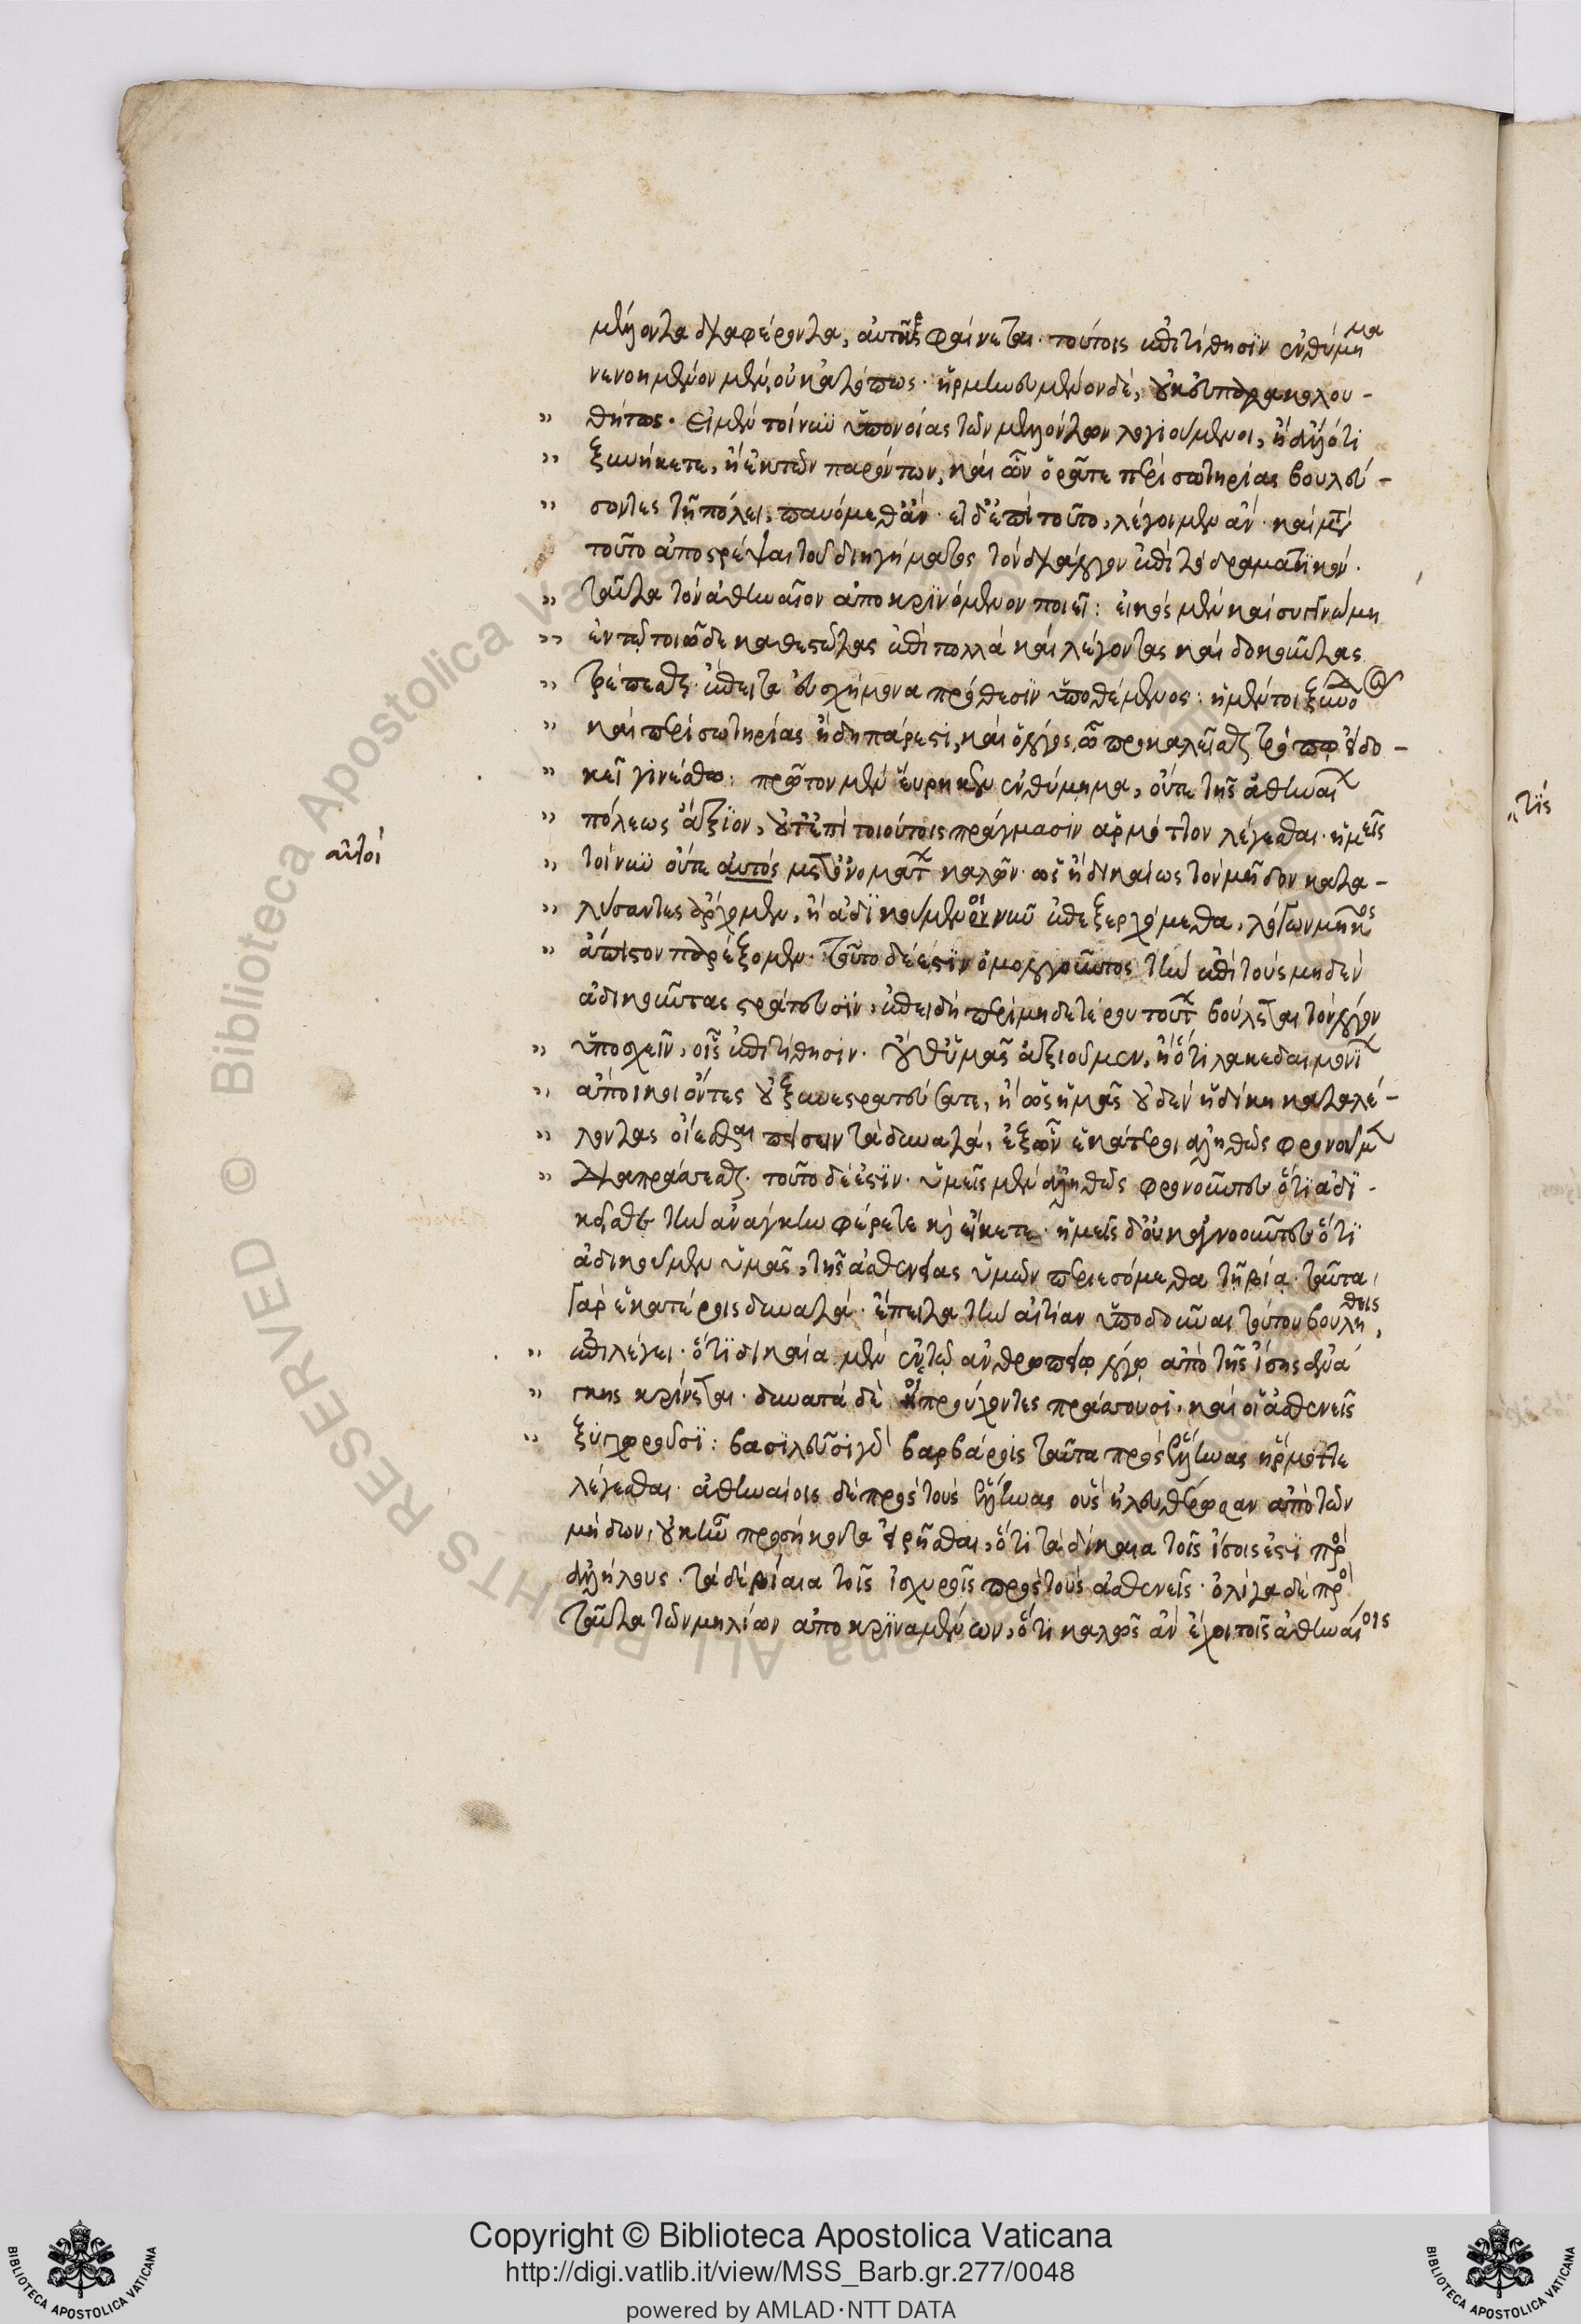 μέλλοντα διαφέροντα, αὐτοῖς φαίνεται. τούτοις ἐπιτίθησιν ἐνθύμημα
νενοημένον μὲν, οὐκ ἀτόπως. ἡρμηνευμένον δὲ, οὐκ εὐπαρακολου-
" θήτως. Εἰ μὲν τοίνυν ὑπονοίας τῶν μελλόντων λογιούμενοι, ἢ ἄλλό τι
" ξυνήκετε, ἢ ἐκ τῶν παρόντων, καὶ ὧν ὁρᾶτε περὶ σωτηρίας βουλεύ-
" σοντες τῇ πόλει, παυόμεθ' ἄν. εἰ δ' ἐπὶ τοῦτο, λέγοιμεν ἄν. καὶ μετὰ
τοῦτο ἀποστρέψαι τοῦ διηγήματος τὸν διάλογον ἐπὶ τὸ δραματικὸν.
" ταῦτα τὸν ἀθηναῖον ἀποκρινόμενον ποιεῖ: εἰκὸς μὲν καὶ συγγνώμη
" ἐν τῷ τοιῷδε καθεστῶτας ἐπὶ πολλὰ καὶ λέγοντας καὶ δοκοῦντας
" τρέπεσθαι. ἔπειτα εὐσχήμονα πρόθεσιν ὑποθέμενος: ἡ μέντοι ξύνοδος
" καὶ περὶ σωτηρίας ἤδη πάρεστι, καὶ ὁ λόγος, ᾧ προκαλεῖσθε τρόπῳ εἰ δο-
" κεῖ γινέσθω: πρῶτον μὲν εὕρηκεν ἐνθύμημα, οὔτε τῆς ἀθηναίων
" πόλεως ἄξιον, οὔτ' ἐπὶ τοιούτοις πράγμασιν ἁρμόττον λέγεσθαι. ἡμεῖς
αὐτοὶ
" τοίνυν οὔτε αὐτὸς μετ' ὀνομάτων καλῶν. ὡς ἢ δικαίως τὸν μῆδον κατα-
" λύσαντες ἄρχομεν, ἢ ἀδικούμενοι νῦν ἐπεξερχόμεθα, λόγων μῆκος
" ἄπιστον παρέξομεν. τοῦτο δέ ἐστιν ὁμολογοῦντος τὴν ἐπὶ τοὺς μηδὲν
ἀδικοῦντας στράτευσιν, ἐπειδὴ περὶ μηδετέρου τούτων βούλεται τὸν λόγον
" ὑποσχεῖν, οἷς ἐπιτίθησιν. οὔθ' ὑμᾶς ἀξιοῦμεν, ἢ ὅτι λακεδαιμονίων
" ἄποικοι ὄντες οὐ ξυνεστρατεύσατε, ἢ ὡς ἡμᾶς οὐδὲν ἠδίκηκατε λέ-
" γοντας οἴεσθαι πείσειν τὰ δυνατὰ, ἐξ ὧν ἑκάτεροι ἀληθῶς φρονοῦμεν
" διαπράσσεσθαι. τοῦτο δέ ἐστιν. ὑμεῖς μὲν ἀληθῶς φρονοῦντες ὅτι ἀδι-
κεῖσθε τὴν ἀνάγκην φέρετε καὶ εἴκετε. ἡμεῖς δ' οὐκ ἀγνοοῦντες ὅτι
ἀδικοῦμεν ὑμᾶς, τῆς ἀσθενείας ὑμῶν περιεσόμεθα τῇ βίᾳ. ταῦτα
γὰρ ἑκατέροις δυνατά. ἔπειτα τὴν αἰτίαν ὑποδοῦναι τούτου βουληθεὶς,
" ἐπιλέγει. ὅτι δίκαια μὲν ἐν τῷ ἀνθρωπείῳ λόγῳ ἀπὸ τῆς ἴσης ἀνά
" γκης κρίνεται. δυνατὰ δὲ οἱ προύχοντες πράσσουσι, καὶ οἱ ἀσθενεῖς
" ξυγχωροῦσι: βασιλεῦσι γὰρ βαρβάροις ταῦτα πρὸς ἕλληνας ἥρμοττε
λέγεσθαι. ἀθηναίοις δὲ πρὸς τοὺς ἕλληνας οὓς ἠλευθέρωσαν ἀπὸ τῶν
μήδων, οὐκ ἦν προσήκοντα εἰρῆσθαι, ὅτι τὰ δίκαια τοῖς ἴσοις ἐστὶ πρὸς
ἀλλήλους. τὰ δὲ βίαια τοῖς ἰσχυροῖς πρὸς τοὺς ἀσθενεῖς. ὀλίγα δὲ πρὸς
ταῦτα τῶν μηλίων ἀποκριναμένων, ὅτι καλῶς ἂν ἔχοι τοῖς ἀθηναίοις
τίς
Copyright © Biblioteca Apostolica Vaticana
http://digi.vatlib.it/view/MSS_Barb.gr.277/0048
powered by AMLAD·NTT DATA
BIBLIOTECA APOSTOLICA VATICANA
BIBLIOTECA APOSTOLICA VATICANA
© Biblioteca Apostolica Vaticana ALL RIGHTS RESERVED